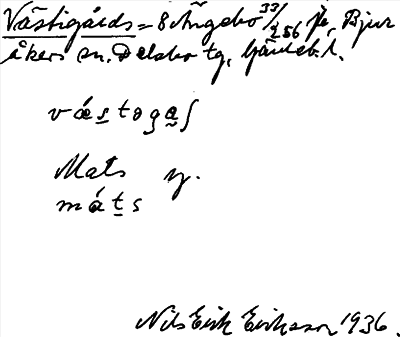 Västigårds = 8 Ängebo 33/256 fr, Bjur
åkers sn. Delsbo tg, Gävleb. l.
vástogaʃ
Mats y.
máts
Nils Erik Eriksson 1936.